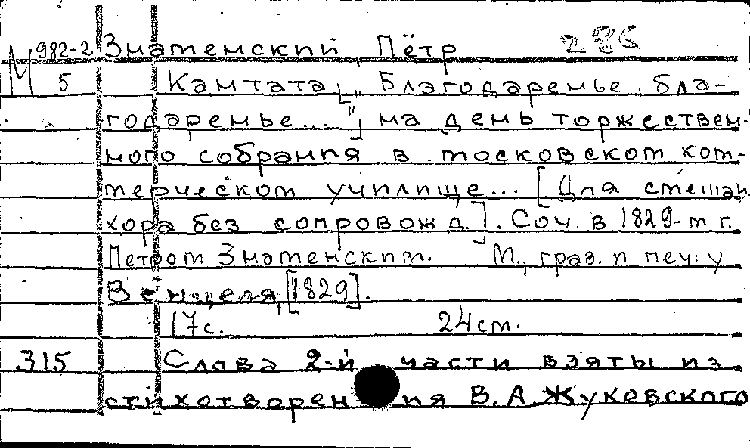 М 982-2 Знаменский Пётр 286
5 Кантата [„Благодаренье, бла-
годаренье..."] на день торжествен-
ного собрания в московском ком-
мерческом училище... [Для смешан.
хора без сопровожд.]. Соч. в 1829-м г.
Петром Знаменским. М., грав. и печ. у
Венцеля, [1829].
17 с. 24 см.
315 Слова 2-й части взяты из
стихотворения В. А. Жуковского